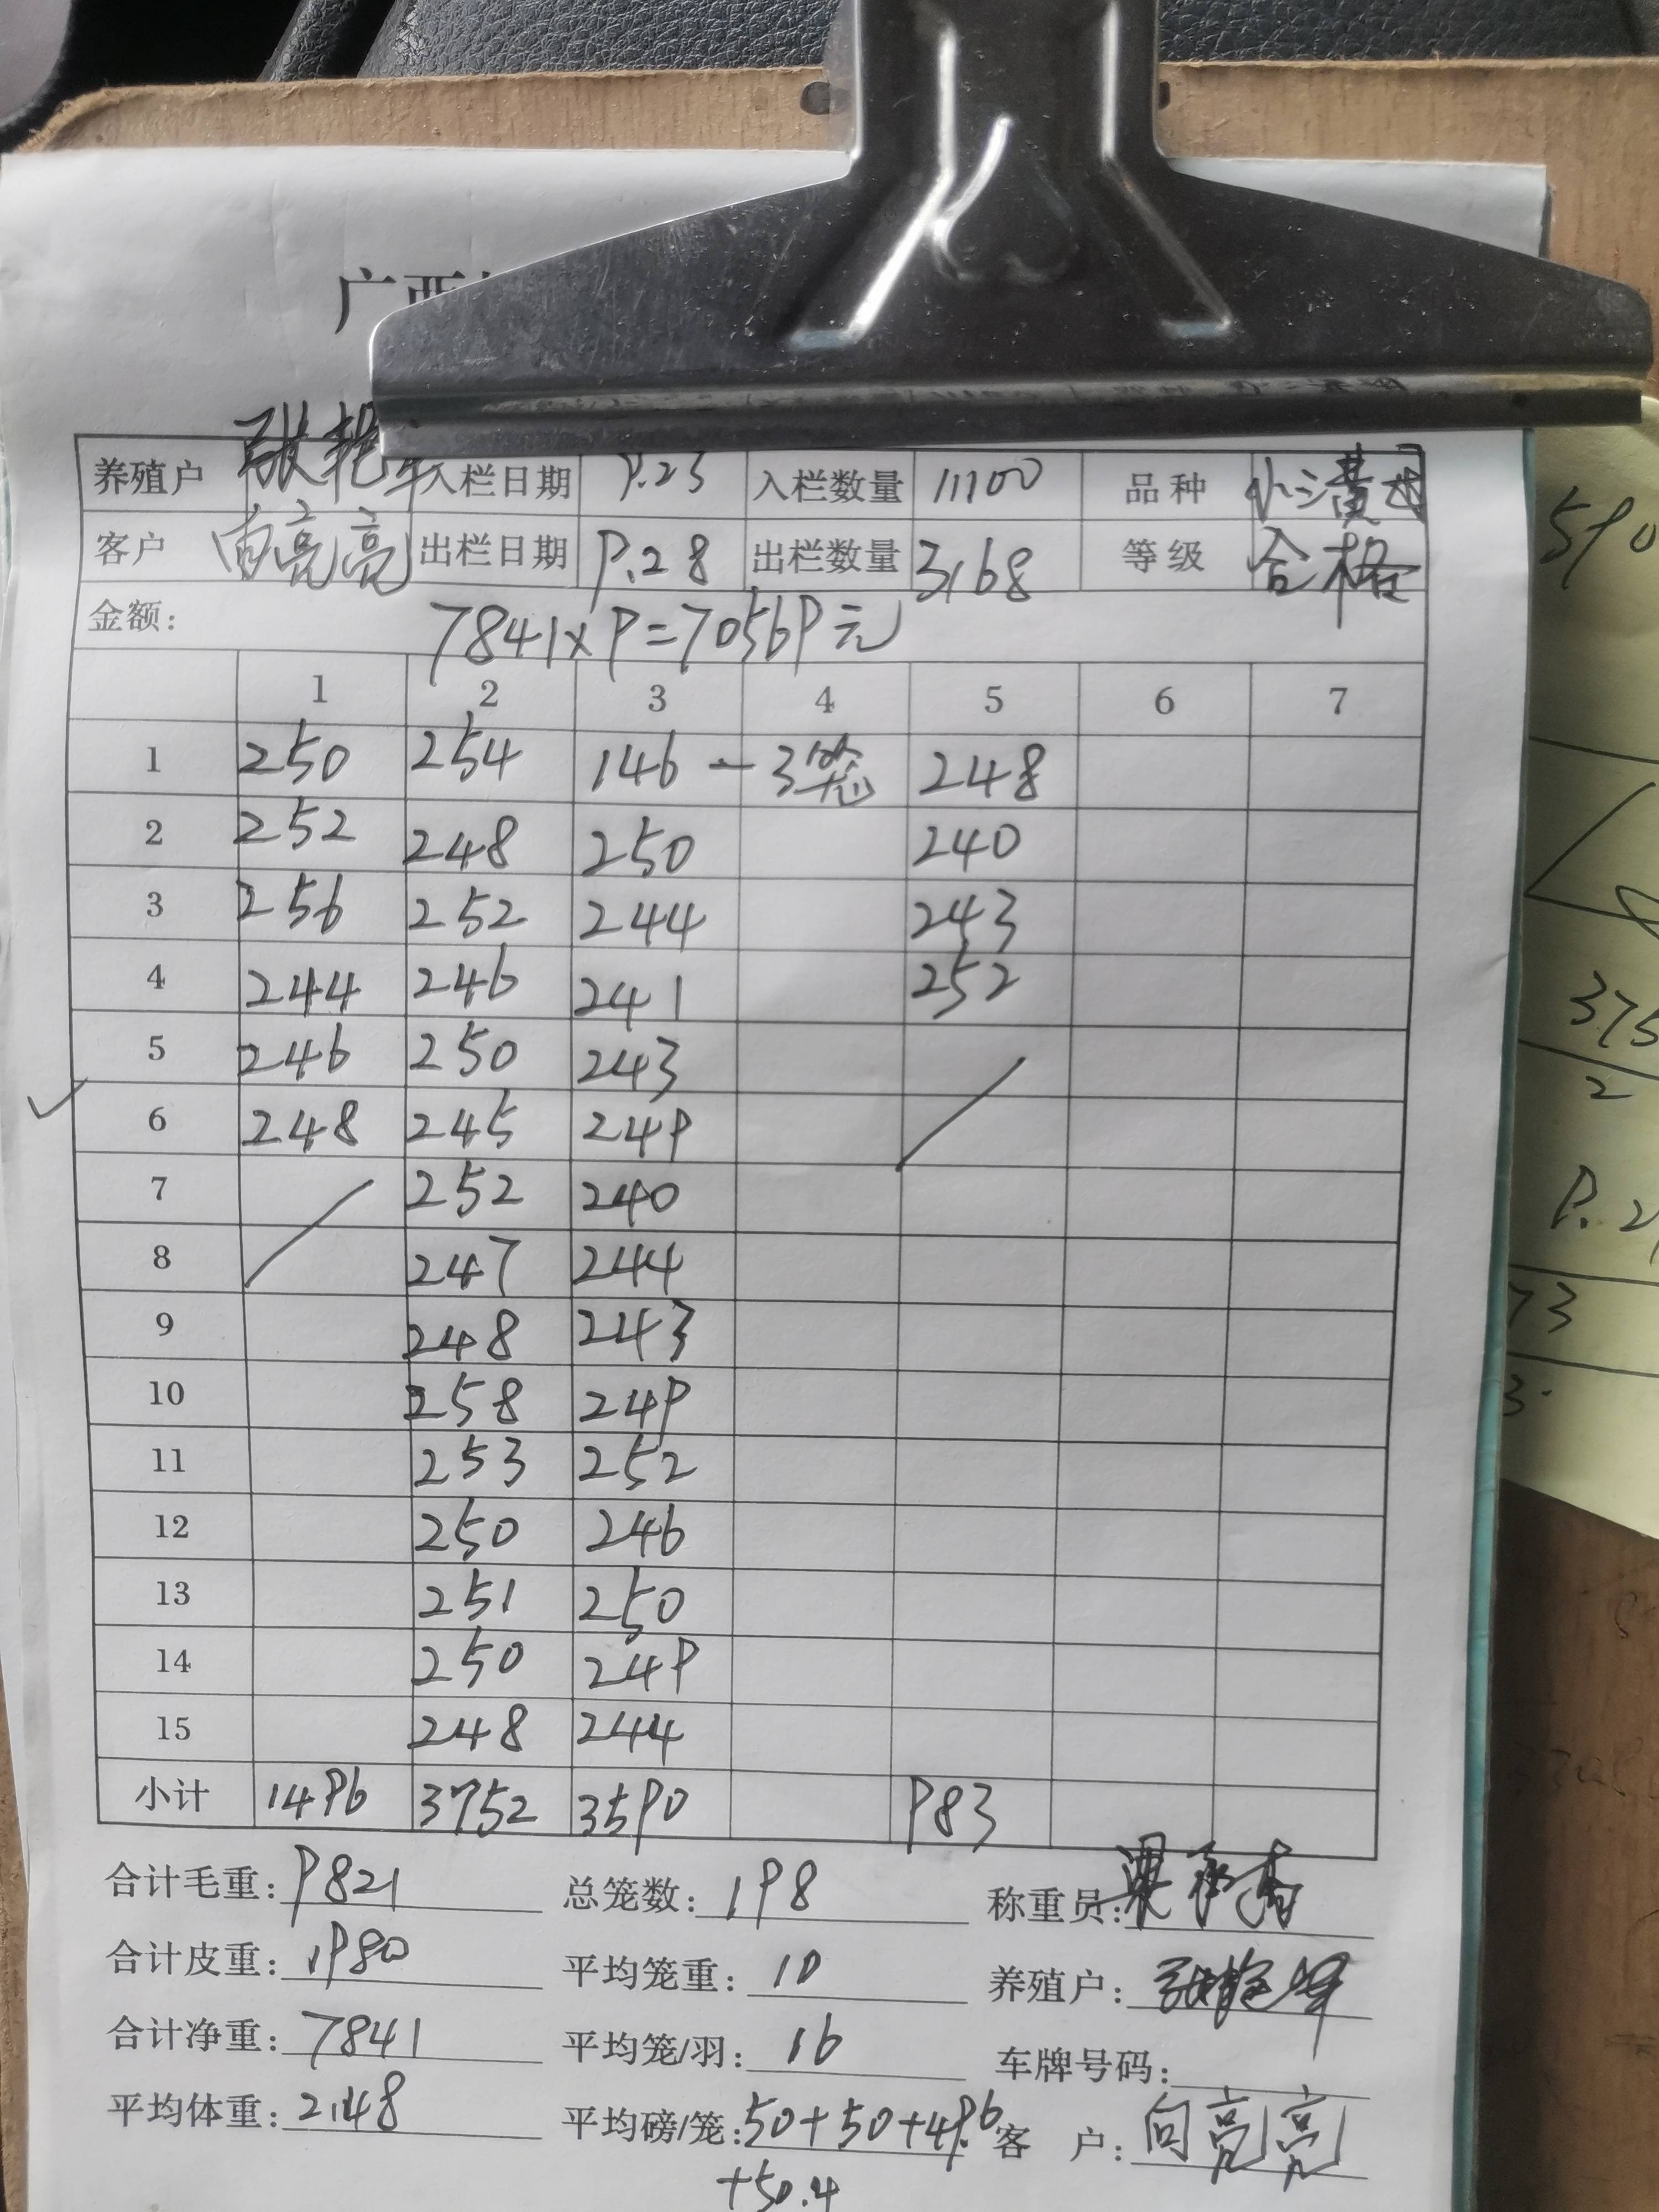 广西
养殖户 张艳军 入栏日期 9.23 入栏数量 11100 品种 小三黄母
客户 向亮亮 出栏日期 9.28 出栏数量 3168 等级 合格
金额: 7841x9=70569元
1 2 3 4 5 6 7
1 250 254 146 - 3笼 248
2 252 248 250 240
3 256 252 244 243
4 244 246 241 252
5 246 250 243
6 248 245 249
7 252 240
8 247 244
9 248 243
10 258 249
11 253 252
12 250 246
13 251 250
14 250 249
15 248 244
小计 1496 3752 3590 983
合计毛重: 9821 总笼数: 198 称重员:
合计皮重: 1980 平均笼重: 10 养殖户:
合计净重: 7841 平均笼/羽: 16 车牌号码:
平均体重: 2.48 平均磅/笼: 50+50+49.6 客 户: 向亮亮
+50.4
590
375
2
9.2
73
3.